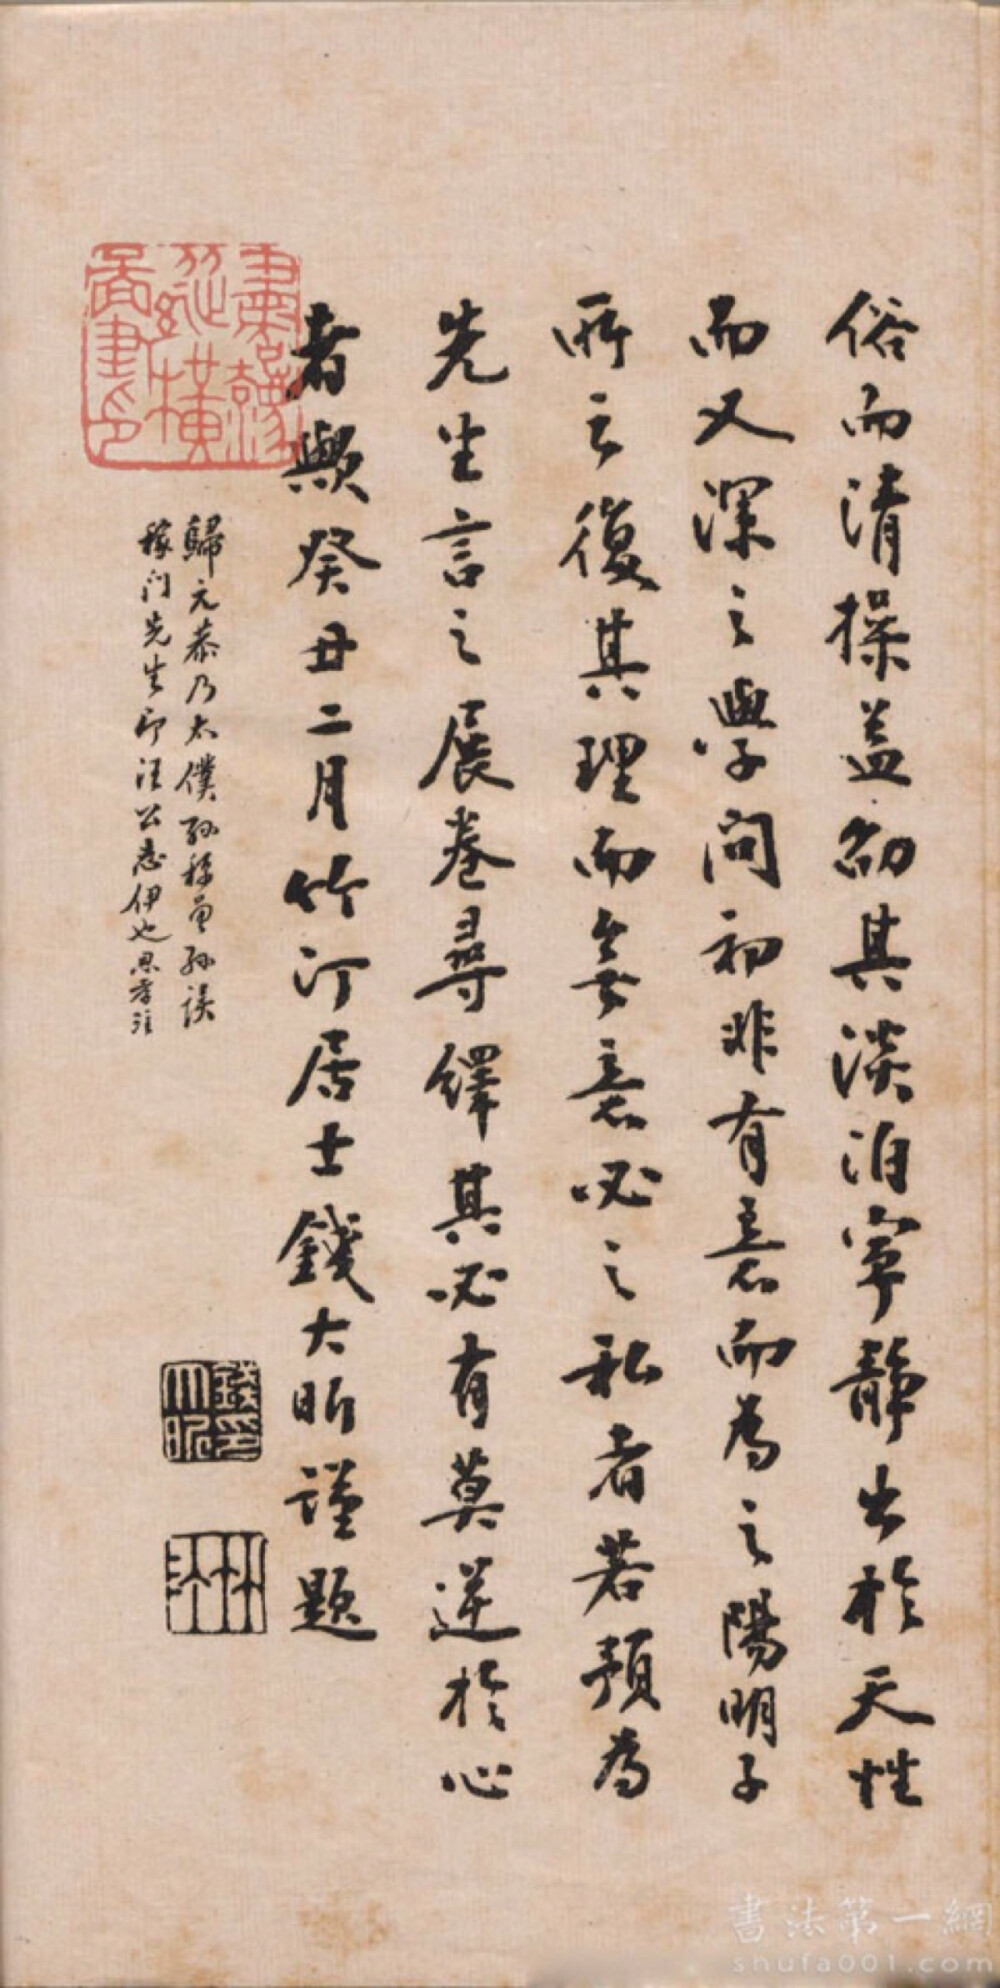 俗而清操蓋劭其淡泊寧靜出於天性
而又深之學問初非有意而為之陽明子
所云復其理而無意必之私者若預為
先生言之展卷尋繹其必有莫逆於心
者歟癸丑二月竹汀居士錢大昕謹題
歸元恭乃太僕孫稱曾孫誤
稼門先生即汪公志伊也思孝注
書法第一網
shufa001.com